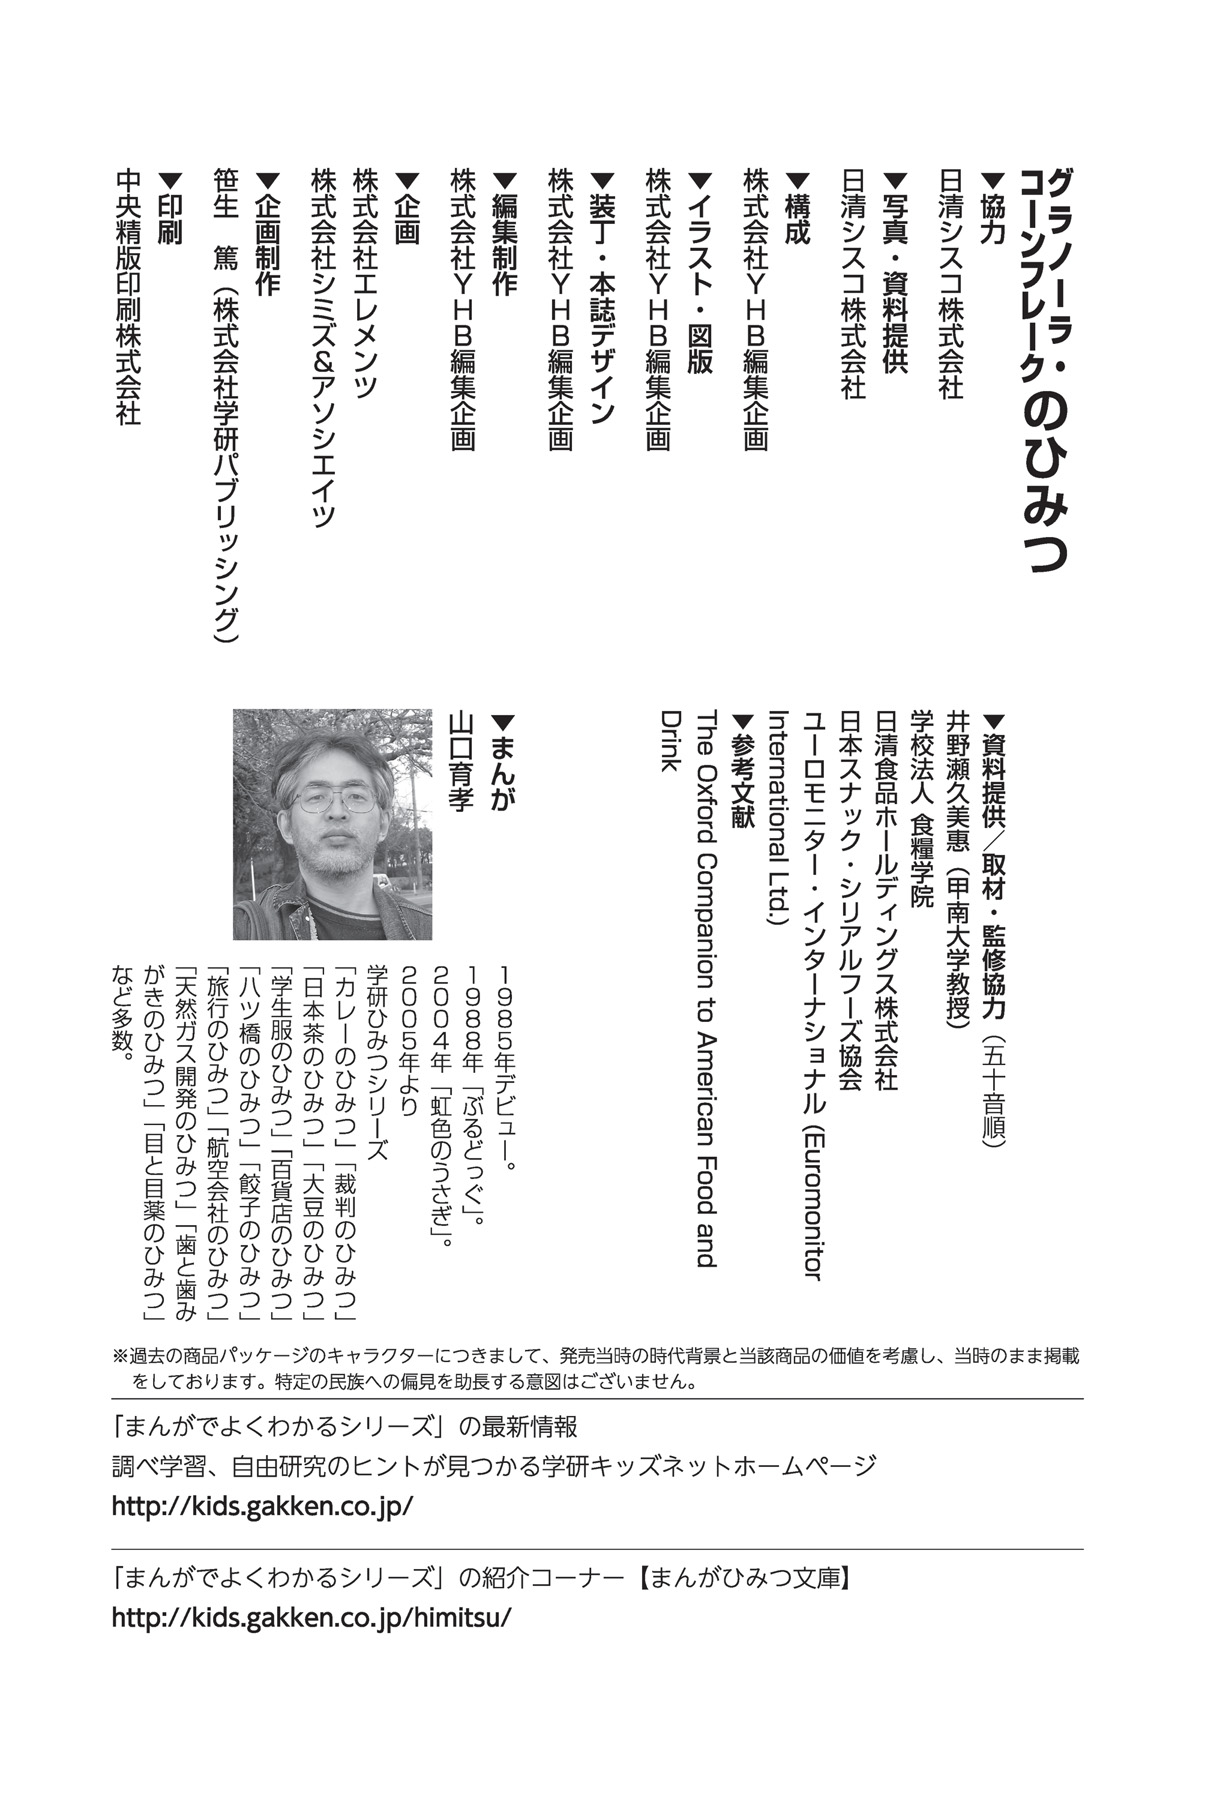 グラノーラ・
コーンフレークのひみつ
▼協力
日清シスコ株式会社
▼写真・資料提供
日清シスコ株式会社
▼構成
株式会社ＹＨＢ編集企画
▼イラスト・図版
株式会社ＹＨＢ編集企画
▼装丁・本誌デザイン
株式会社ＹＨＢ編集企画
▼編集制作
株式会社ＹＨＢ編集企画
▼企画
株式会社エレメンツ
株式会社シミズ＆アソシエイツ
▼企画制作
笹生　篤（株式会社学研パブリッシング）
▼印刷
中央精版印刷株式会社
▼資料提供／取材・監修協力（五十音順）
井野瀬久美惠（甲南大学教授）
学校法人 食糧学院
日清食品ホールディングス株式会社
日本スナック・シリアルフーズ協会
ユーロモニター・インターナショナル (Euromonitor
International Ltd.)
▼参考文献
The Oxford Companion to American Food and
Drink
▼まんが
山口育孝
１９８５年デビュー。
１９８８年「ぶるどっぐ」。
２００４年「虹色のうさぎ」。
２００５年より
学研ひみつシリーズ
「カレーのひみつ」「裁判のひみつ」
「日本茶のひみつ」「大豆のひみつ」
「学生服のひみつ」「百貨店のひみつ」
「八ツ橋のひみつ」「餃子のひみつ」
「旅行のひみつ」「航空会社のひみつ」
「天然ガス開発のひみつ」「歯と歯み
がきのひみつ」「目と目薬のひみつ」
など多数。
※過去の商品パッケージのキャラクターにつきまして、発売当時の時代背景と当該商品の価値を考慮し、当時のまま掲載
をしております。特定の民族への偏見を助長する意図はございません。
「まんがでよくわかるシリーズ」の最新情報
調べ学習、自由研究のヒントが見つかる学研キッズネットホームページ
http://kids.gakken.co.jp/
「まんがでよくわかるシリーズ」の紹介コーナー【まんがひみつ文庫】
http://kids.gakken.co.jp/himitsu/